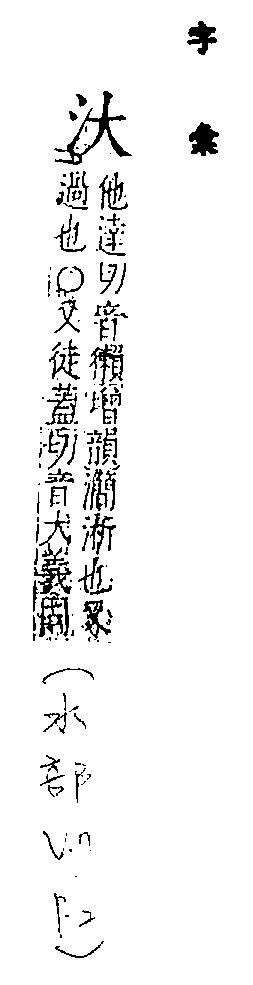 字彙
汏
他達切音獺增韻淅也
過也〇又徒蓋切音大義同
(水部